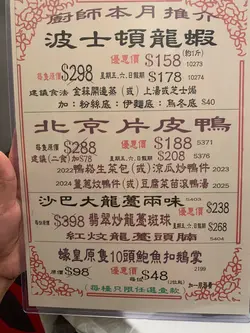 廚師本月推介
波士頓龍蝦
(約1斤)
每隻原價$298 優惠價$158 10273
星期五.六.日假期$178 10274
建議食法: 金蒜開邊蒸(或)上湯或芝士焗
加: 粉絲底: 伊麵底: 烏冬底 $40
北京片皮鴨
每隻原價$288 優惠價$188 5371
建議(二食)加$78 星期五.六.日假期$208 5376
2022鴨菘生菜包(或)涼瓜炒鴨件
2023薑蔥炆鴨件(或)豆腐菜苗滾鴨湯 2025
沙巴大龍躉兩味 5403 優惠價$238
每份原價$398 翡翠炒龍躉斑球 星期五.六.日假期$268
紅炆龍躉頭腩 5404
蠔皇原隻10頭鮑魚扣鵝掌
原價$98 每位$48 2199
(2位起)
(每檯只限任選壹款) 加一服務費